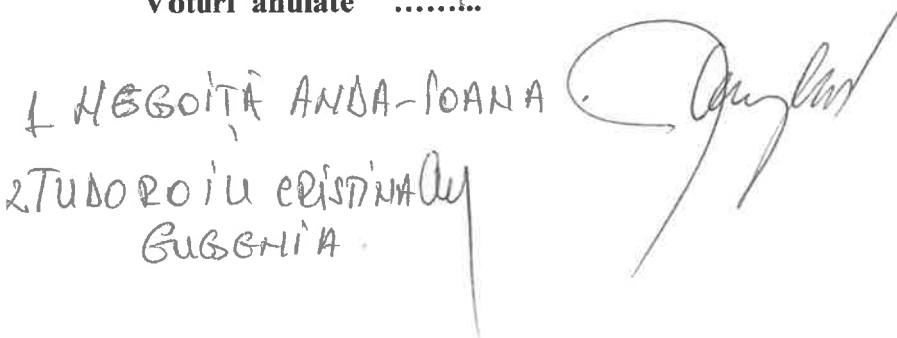 Voturi anulate ……...
1 NEGOIȚĂ ANDA-IOANA
2 TUDOROIU CRISTINA
EUGENIA